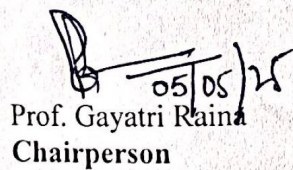 05/05/25
Prof. Gayatri Raina
Chairperson